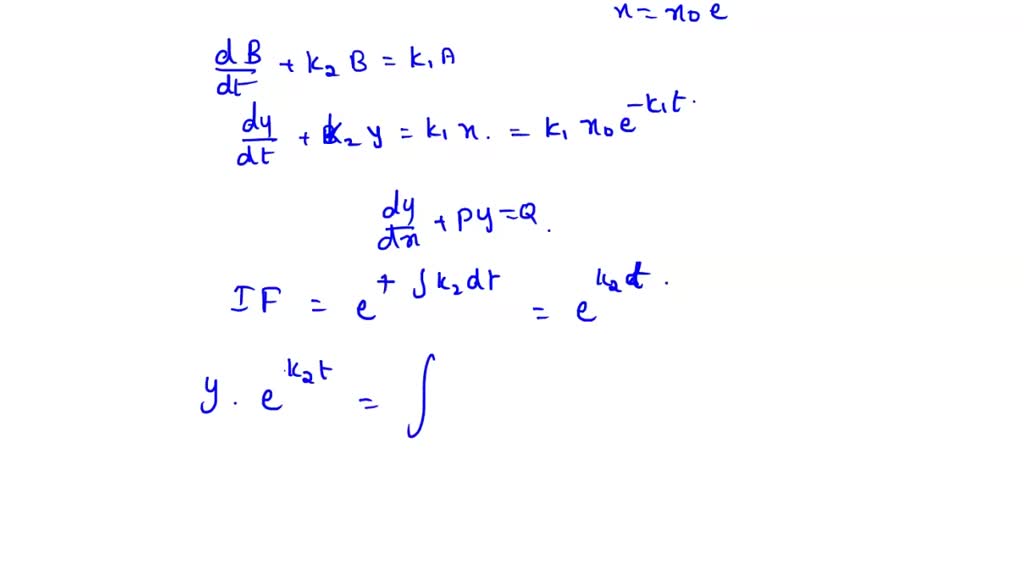 n = n₀ e
dB/dt + k₂ B = k₁ A
dy/dt + k₂ y = k₁ n. = k₁ n₀ e^(-k₁t).
dy/dn + Py = Q.
IF = e^(+∫k₂dt) = e^(k₂t).
y . e^(k₂t) = ∫